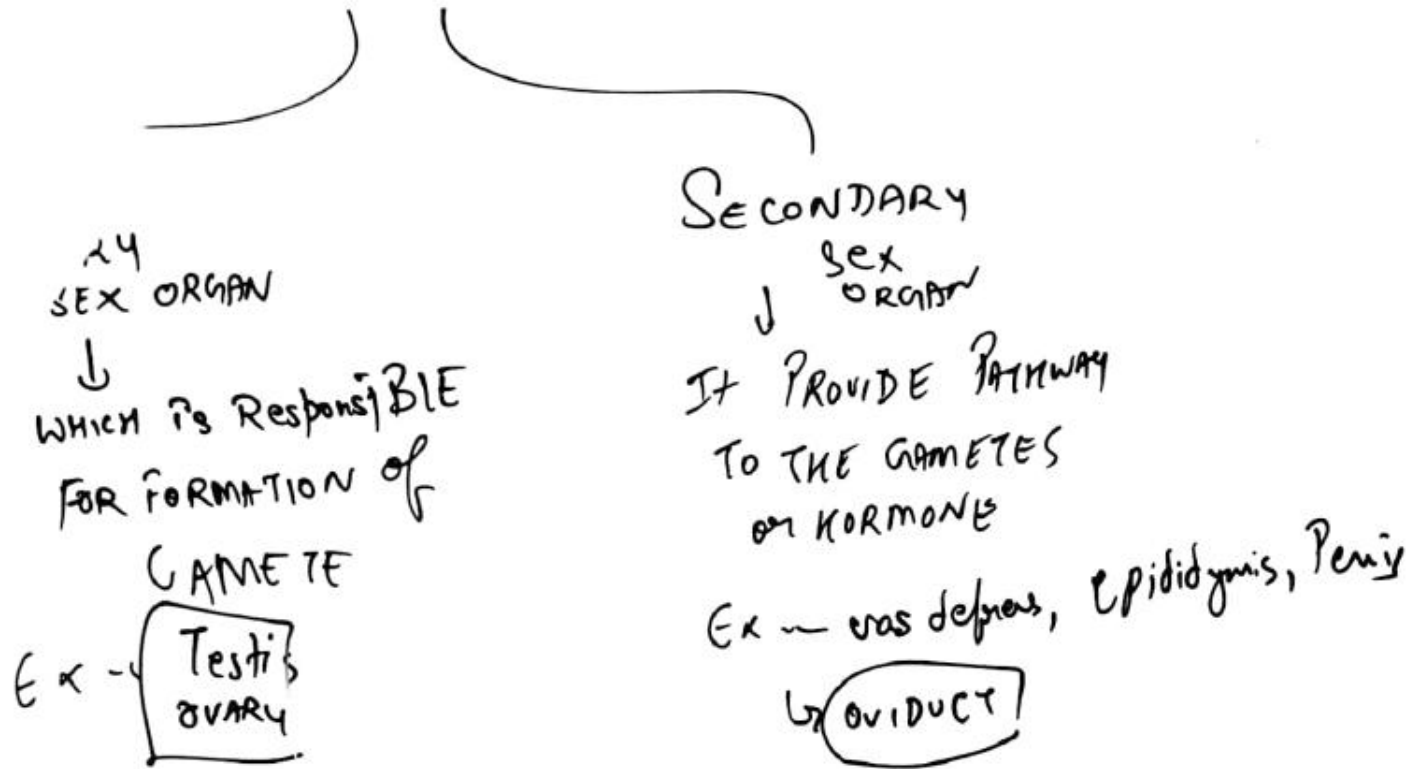 SEX ORGAN
↓
WHICH is Responsible
FOR FORMATION of
GAMETE
Ex - Testis
OVARY
SECONDARY
sex
ORGAN
↓
It PROVIDE PATHWAY
TO THE GAMETES
or HORMONE
Ex - vas defrens, epididymis, Penis
↳ OVIDUCT